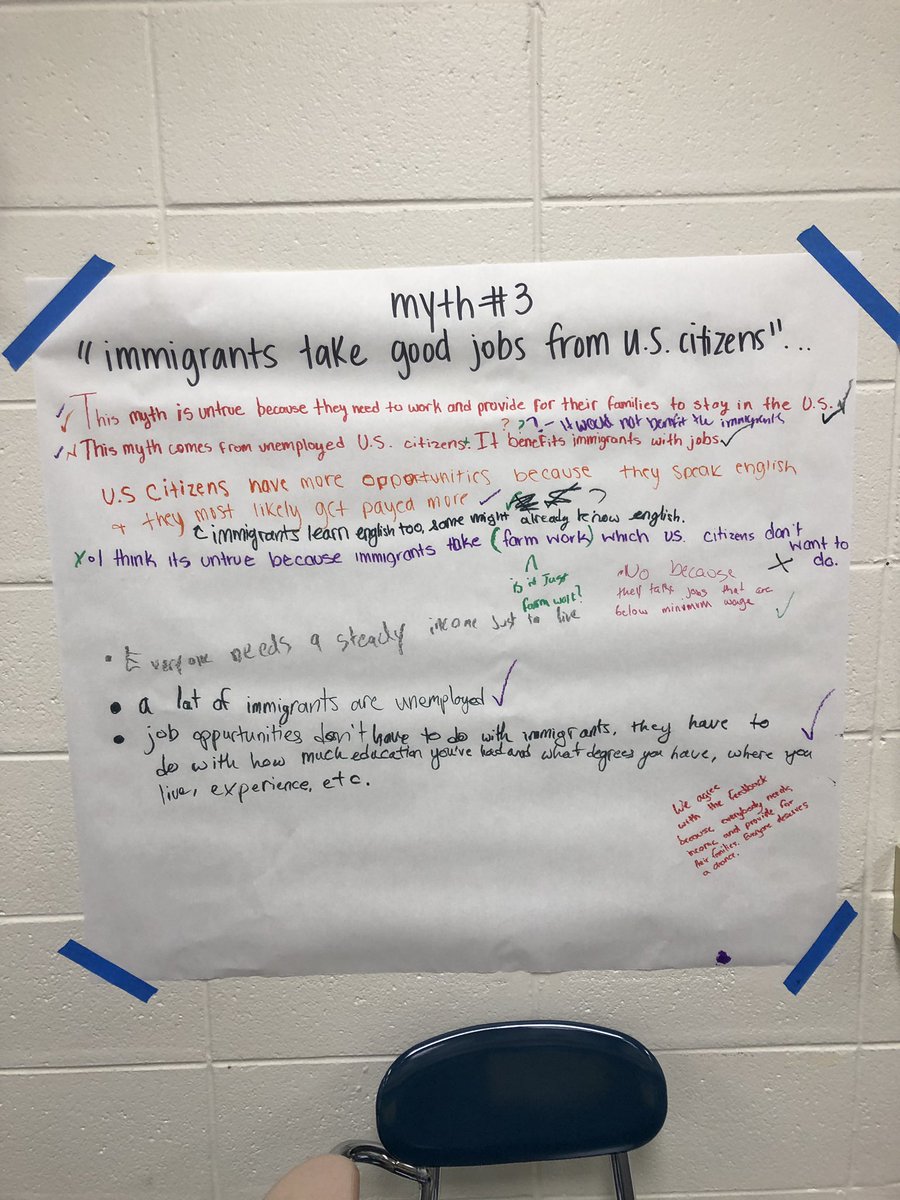 myth #3
"immigrants take good jobs from U.S. citizens"...
This myth is untrue because they need to work and provide for their families to stay in the U.S.
? ? ? - It would not benefit the immigrants
This myth comes from unemployed U.S. citizens. It benefits immigrants with jobs
U.S Citizens have more opportunities because they speak english
+ they most likely get payed more
immigrants learn english too, some might already know english.
I think its untrue because immigrants take (farm work) which us. citizens don't
want to
do.
is it Just
farm work?
No because
they take jobs that are
below minimum wage
Everyone needs a steady income just to live
a lot of immigrants are unemployed
job oppurtunities don't have to do with immigrants, they have to
do with how much education you've had and what degrees you have, where you
live, experience, etc.
We agree
with the feedback
because everybody needs
income and provide for
their families. Everyone deserves
a chance.